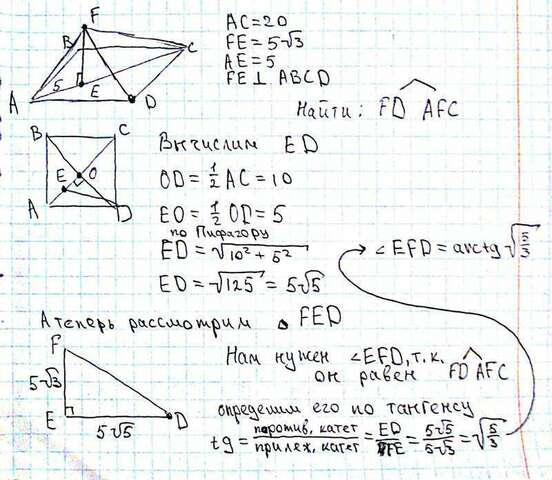 F
B
C
5
E
A
D
AC=20
FE=5√3
AE=5
FE⊥ABCD
Найти: FD^AFC
B C
E O
A D
Вычислим ED
OD=½AC=10
EO=½OD=5
по Пифагору
ED=√10²+5²
ED=√125=5√5
∠EFD=arctg√5/3
А теперь рассмотрим △ FED
F
5√3
E
D
5√5
Нам нужен ∠EFD, т.к.
он равен FD^AFC
определим его по тангенсу
tg=противо. катет/прилеж. катет=ED/FE=5√5/5√3=√5/3